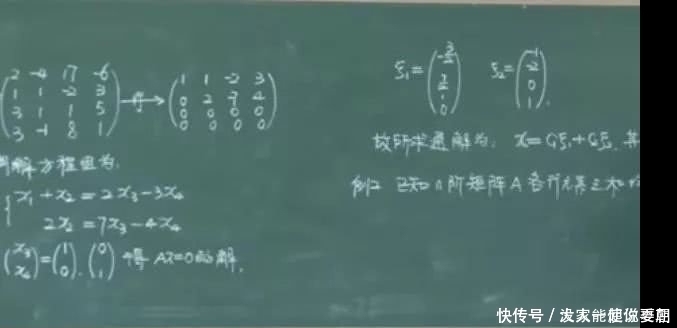 2 -4 17 -6
1 1 -2 3
3 1 1 5
3 -1 8 1
→
1 1 -2 3
0 2 -7 4
0 0 0 0
0 0 0 0
同解方程组为:
x₁+x₂=2x₃-3x₄
2x₂=7x₃-4x₄
(x₃ x₄)=(1 0),(0 1)得 Ax=0的解,
ξ₁=(-3/2 7/2 1 0) ξ₂=(-1 -2 0 1).
故所求通解为: x=C₁ξ₁+C₂ξ₂, 其
例2 已知n阶矩阵A各行元素之和均
快传号/